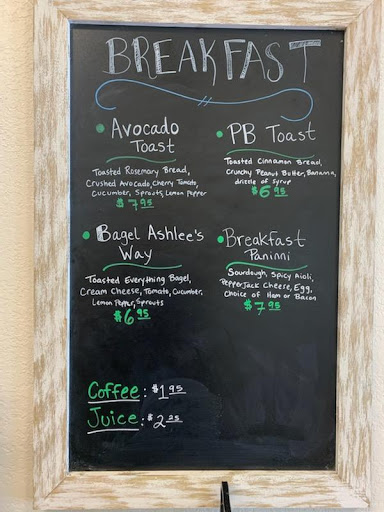 BREAKFAST
• Avocado
Toast
Toasted Rosemary Bread,
Crushed Avocado, Cherry Tomato,
Cucumber, Sprouts, Lemon Pepper
$7.95
• PB Toast
Toasted Cinnamon Bread,
Crunchy Peanut Butter, Banana,
drizzle of Syrup
$6.95
• Bagel Ashlee's
Way
Toasted Everything Bagel,
Cream Cheese, Tomato, Cucumber,
Lemon Pepper, Sprouts
$6.95
• Breakfast
Paninni
Sourdough, Spicy Aioli,
PepperJack Cheese, Egg,
Choice of Ham or Bacon
$7.95
Coffee: $1.95
Juice: $2.25